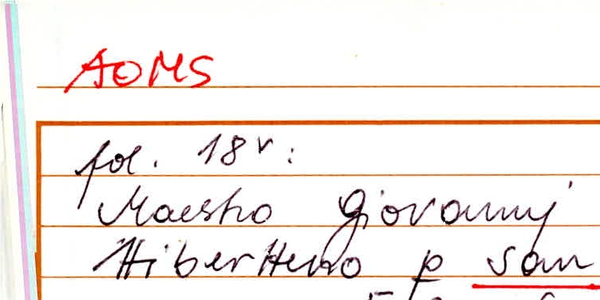 AOMS
fol. 18v:
Maestro Giovannj
Hibertteno p san